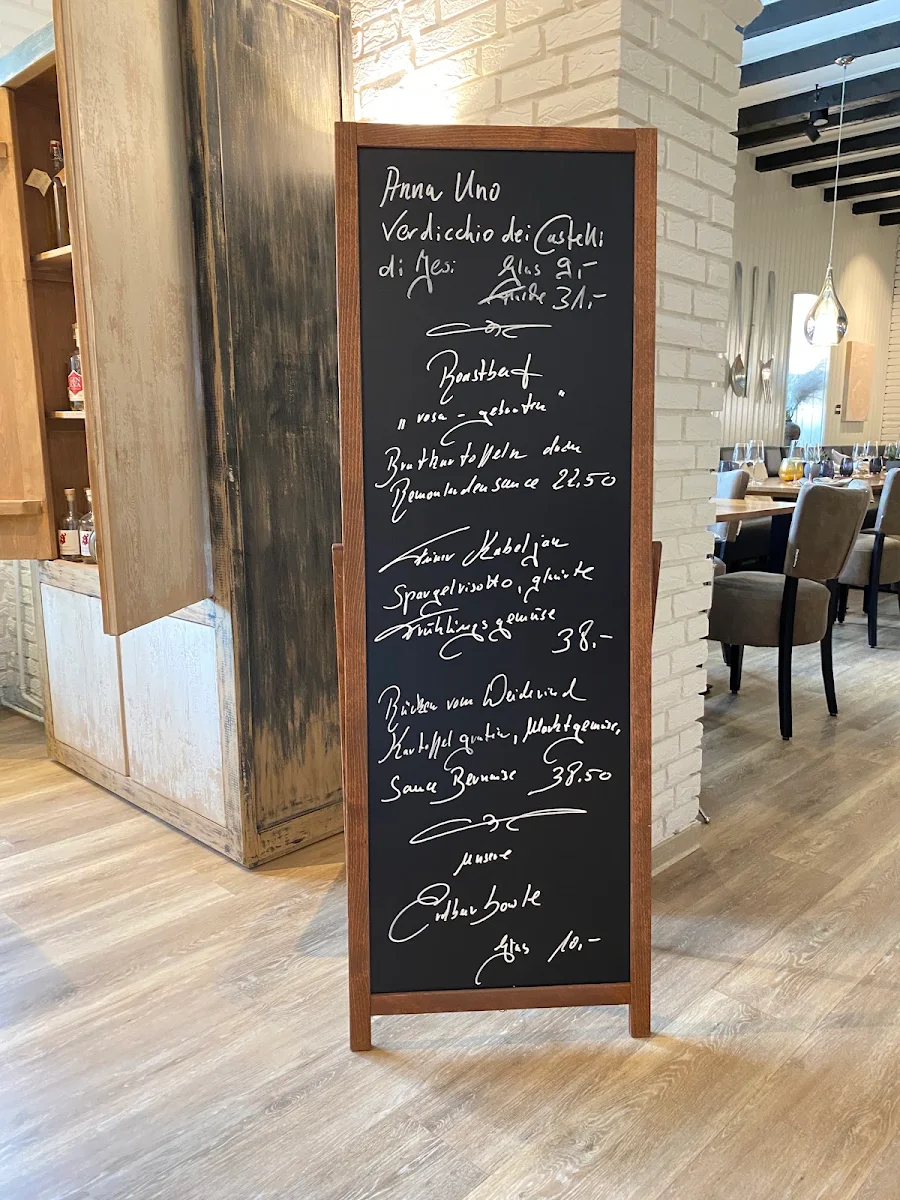 Anna Uno
Verdicchio dei Castelli
di Jesi Glas 9,-
31,-
Roastbeef
"rosa - gebraten"
Bratkartoffeln dazu
Remouladensauce 22.50
Kabeljau
Spargelrisotto, glasierte
Frühlingsgemüse
38.-
Rücken vom Weiderind
Kartoffelgratin, Marktgemüse,
Sauce Bernaise 38.50
unsere
Erdbeerbowle
Glas 10.-